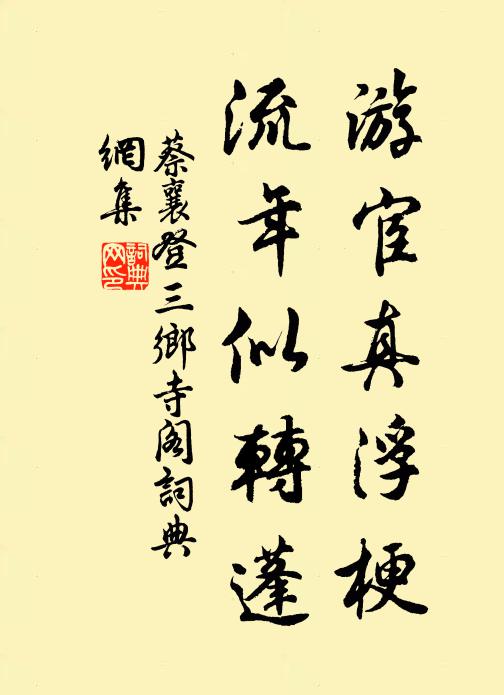 游宦真浮梗
流年似轉蓬
蔡襄登三鄉寺阁詞典
網集
詞典網印